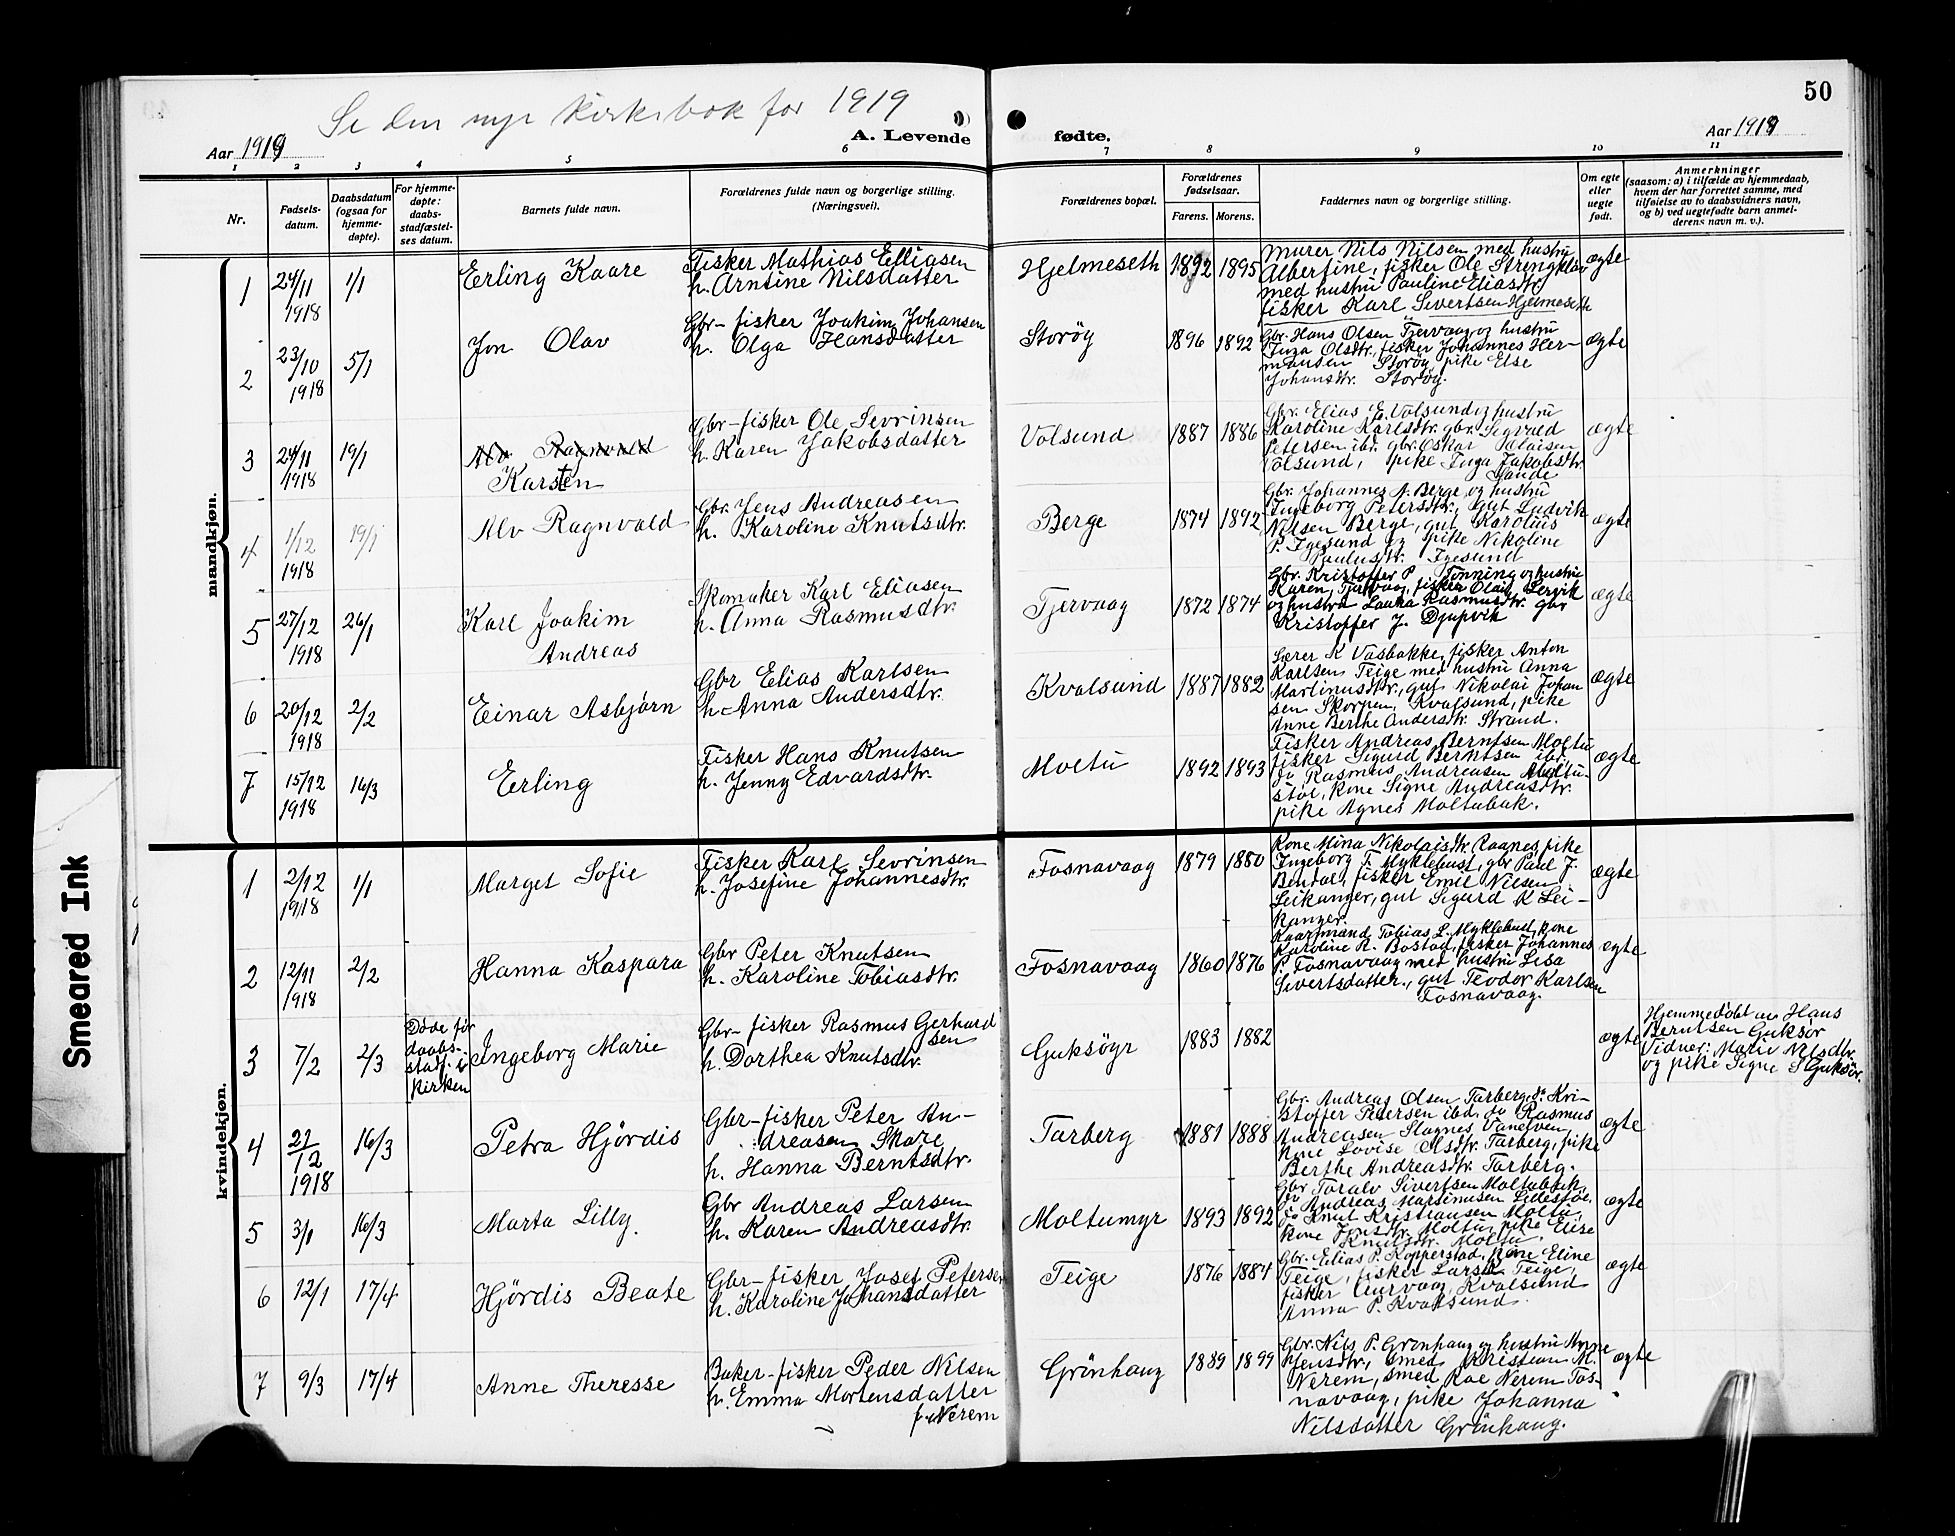 50
Se den nye kirkebok for 1919
Aar 1919
A. Levende fødte.
Aar 1919
1 2 3 4 5 6 7 8 9 10 11
Nr.
Fødsels-
datum.
Daabsdatum
(ogsaa for
hjemme-
døpte).
For hjemme-
døpte:
daabs-
stadfæstel-
ses datum.
Barnets fulde navn.
Forældrenes fulde navn og borgerlige stilling.
(Næringsvei).
Forældrenes bopæl.
Forældrenes
fødselsaar.
Farens. Morens.
Faddernes navn og borgerlige stilling.
Om egte
eller
uegte
født.
Anmerkninger
(saasom: a) i tilfælde av hjemmedaab,
hvem der har forrettet samme, med
tilføielse av to daabsvidners navn,
og b) ved uegtefødte barn anmel-
derens navn m. v.).
mandkjøn.
1 24/11 1918 1/1 Erling Kaare
Fisker Mathias Elliasen
h. Arntine Nilsdatter
Hjelmeseth 1892 1895
Murer Nils Nilsen med hustru
Albertine, fisker Ole Strengklav
med hustru Pauline Eliasdtr.
fisker Karl Sivertsen Hjelmeseth
ægte
2 23/10 1918 5/1 Jon Olav
Gbr-fisker Joakim Johansen
h. Olga Hansdatter
Storøy 1896 1892
Gbr. Hans Olsen Tjervaag og hustru
Inga Olsdtr., fisker Johannes Her-
mansen Storøy pike Else
Johansdtr. Storøy.
ægte
3 24/11 1918 19/1 Alv Ragnvald
Karsten
Gbr-fisker Ole Sevrinsen
h. Karen Jakobsdatter
Volsund 1887 1886
Gbr. Elias E. Volsund og hustru
Karoline Karlsdtr. gbr. Sigvald
Petersen ibd. gbr. Oskar
Volsund, pike Inga Jakobsdtr.
Sande
ægte
4 1/12 1918 19/1 Alv Ragnvald
Gbr. Jens Andreasen
h. Karoline Knutsdtr.
Berge 1874 1892
Gbr. Johannes N. Berge og hustru
Ingeborg Petersdtr., gut Ludvik
Nilsen Berge, gut Karolius
P. Igesund og pike Nikoline
Paulusdtr. Igesund
ægte
5 27/12 1918 26/1 Karl Joakim
Andreas
Skomaker Karl Eliasen
h. Anna Rasmusdtr.
Tjervaag 1872 1874
Gbr. Kristoffer P. Tønning og hustru
Karen, Tjervaag, fisker Olaf Lervik
og hustru Laura Rasmusdtr. gbr
Kristoffer J. Djupvik
ægte
6 20/12 1918 2/2 Einar Asbjørn
Gbr Elias Karlsen
h. Anna Andersdtr.
Kvalsund 1887 1882
Lærer K Vasbakke, fisker Anton
Karlsen Teige med hustru Anna
Martinusdtr., gut Nikolai Johan
sen Skorpen, Kvalsund, pike
Anne Berthe Andersdtr. Strand.
ægte
7 15/12 1918 16/3 Erling
Fisker Hans Knutsen
h. Jenny Edvardsdtr.
Moltu 1892 1893
Fisker Andreas Berntsen Moltu
fisker Sigurd Berntsen ibd.
do Rasmus Andreasen Moltu-
støl, kone Signe Andreasdtr.
pike Agnes Moltubak.
ægte
kvindekjøn.
1 2/12 1918 1/1 Marget Sofie
Fisker Karl Sevrinsen
h. Josefine Johannesdtr.
Fosnavaag 1879 1880
Kone Mina Nikolaisdtr. Raanes, pike
Ingeborg T. Myklebust, gbr Paul J.
Bendal, fisker Emil Nilsen
Leikanger, gut Sigurd K Lei-
kanger.
ægte
2 12/11 1918 2/2 Hanna Kaspara
Gbr Peter Knutsen
h. Karoline Tobiasdtr.
Fosnavaag 1860 1876
Kaarmand Tobias L. Myklebust, kone
Karoline R. Bostad, fisker Johannes
P. Fosnavaag med hustru Lisa
Sivertsdatter., gut Teodor Karlsen
Fosnavaag.
ægte
3 7/2 2/3
Døde før
daabs-
stadf. i
kirken
Ingeborg Marie
Gbr-fisker Rasmus Gerhard
sen
h. Dorthea Knutsdtr.
Guksøyr 1883 1882
ægte
Hjemmedøbt av Hans
Berntsen Guksør
Vidner: Marie Nilsdtr.
og pike Signe S Guksør.
4 27/12 1918 16/3 Petra Hjørdis
Gbr-fisker Peter An-
dreasen Skare
h. Hanna Berntsdtr.
Tarberg 1881 1888
Gbr. Andreas Olsen Tarberg, do Kri-
stoffer Petersen ibd. do Rasmus
Andreasen Slagnes Vanelven
kone Lovise Olsdtr. Tarberg, pike
Berthe Andreasdtr. Tarberg.
ægte
5 3/1 16/3 Marta Lilly.
Gbr Andreas Larsen
h. Karen Andreasdtr.
Moltumyr 1893 1892
Gbr Toralv Sivertsen Moltubak,
do Andreas Martinusen Lidestøl.
do Knut Kristiansen Moltu,
kone Jonsdtr. Moltu, pike Elise
Knutsdtr. Moltu.
ægte
6 12/1 17/4 Hjørdis Beate
Gbr-fisker Josef Petersen
h. Karoline Johansdatter
Teige 1876 1884
Gbr. Elias P. Kopperstad, kone Eline
Teige, fisker Lars K Teige,
fisker Aurvaag, Kvalsund
Anna P. Kvalsund
ægte
7 9/3 17/4 Anne Theresse
Baker-fisker Peder Nilsen
h. Emma Mortensdatter
f. Nerem
Grönhaug 1889 1899
Gbr. Nils P. Grønhaug og hustru Anne
Jensdtr., smed Kristian M.
Nerem, smed Roe Nerem Fos-
navaag, pike Johanna
Nilsdatter Grönhaug.
ægte
Smeared Ink